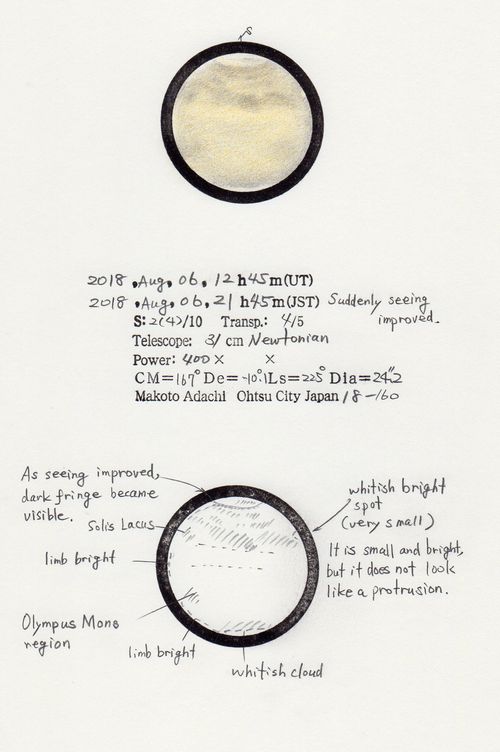 S
2018, Aug, 06, 12h45m(UT)
2018, Aug, 06, 21h45m(JST) Suddenly seeing improved.
S: 2(4)/10 Transp.: 4/5
Telescope: 31 cm Newtonian
Power: 400× ×
CM=167° De=-10.1 Ls=225° Dia=24"2
Makoto Adachi Ohtsu City Japan 18-160
As seeing improved,
dark fringe became
visible.
Solis Lacus
limb bright
Olympus Mons
region
limb bright
whitish cloud
whitish bright
spot
(very small)
It is small and bright,
but it does not look
like a protrusion.